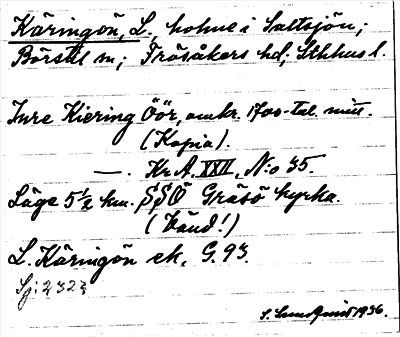 Käringön, L., holme i Saltsjön;
Börstil sn; Frösåkers hd; Sthlms l.
Inre Kiering Öör, omkr. 1700-tal. mitt.
(Kopia).
—. Kr.A. XXII, N:o 35.
Läge 5½ km. SSÖ Gräsö kyrka.
(Vänd!)
L. Käringön ek. G. 93.
Sj: 232
S. Lundquist 1936.